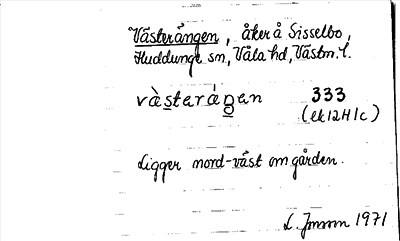 Västerängen, åker å Sisselbo,
Huddunge sn, Våla hd, Västm. l.
vàsteráŋen 333
(ek 12H1c)
Ligger nord-väst om gården.
1971